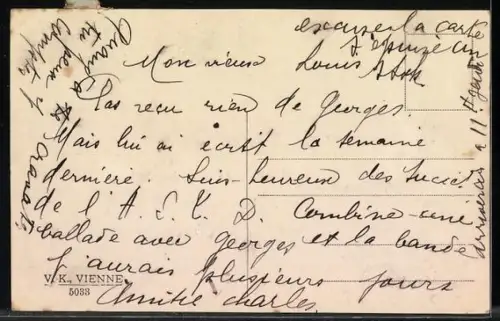 excuser la carte
Mon vieux Louis
Pas reçu rien de Georges.
Mais lui ai écrit la semaine
dernière. Suis heureux des succès
de l'A.S.K.D. Combine une
ballade avec Georges et la bande
J'aurais plusieurs jours
Amitié Charles
V. K., VIENNE
5033
Quand
tu peux
compte y
arriverais à 11